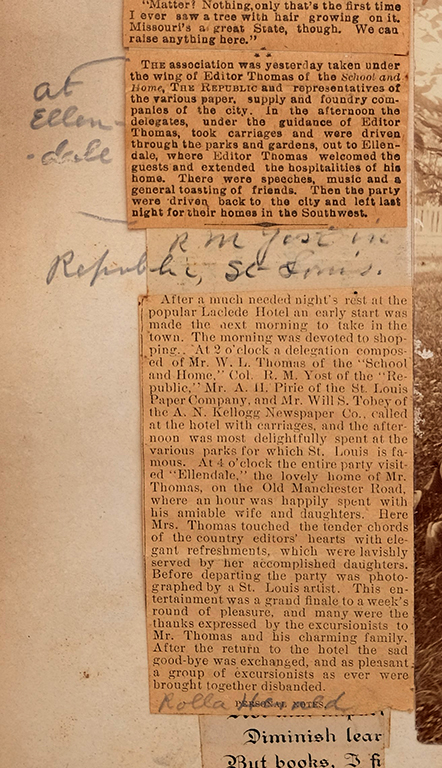 "Matter? Nothing, only that's the first time
I ever saw a tree with hair growing on it.
Missouri's a great State, though. We can
raise anything here."
THE association was yesterday taken under
the wing of Editor Thomas of the School and
Home, THE REPUBLIC and representatives of
the various paper, supply and foundry com-
panies of the city. In the afternoon the
delegates, under the guidance of Editor
Thomas, took carriages and were driven
through the parks and gardens, out to Ellen-
dale, where Editor Thomas welcomed the
guests and extended the hospitalities of his
home. There were speeches, music and a
general toasting of friends. Then the party
were driven back to the city and left last
night for their homes in the Southwest.
at
Ellen-
-dale
R M Yost in
Republic, St Louis.
After a much needed night's rest at the
popular Laclede Hotel an early start was
made the next morning to take in the
town. The morning was devoted to shop-
ping. At 2 o'clock a delegation compos-
ed of Mr. W. L. Thomas of the "School
and Home," Col. R. M. Yost of the "Re-
public," Mr. A. H. Pirie of the St. Louis
Paper Company, and Mr. Will S. Tobey of
the A. N. Kellogg Newspaper Co., called
at the hotel with carriages, and the after-
noon was most delightfully spent at the
various parks for which St. Louis is fa-
mous. At 4 o'clock the entire party visit-
ed "Ellendale," the lovely home of Mr.
Thomas, on the Old Manchester Road,
where an hour was happily spent with
his amiable wife and daughters. Here
Mrs. Thomas touched the tender chords
of the country editors' hearts with ele-
gant refreshments, which were lavishly
served by her accomplished daughters.
Before departing the party was photo-
graphed by a St. Louis artist. This en-
tertainment was a grand finale to a week's
round of pleasure, and many were the
thanks expressed by the excursionists to
Mr. Thomas and his charming family.
After the return to the hotel the sad
good-bye was exchanged, and as pleasant
a group of excursionists as ever were
brought together disbanded.
PERSONAL NOTES.
Rolla Herald
Diminish lear
But books, I fi